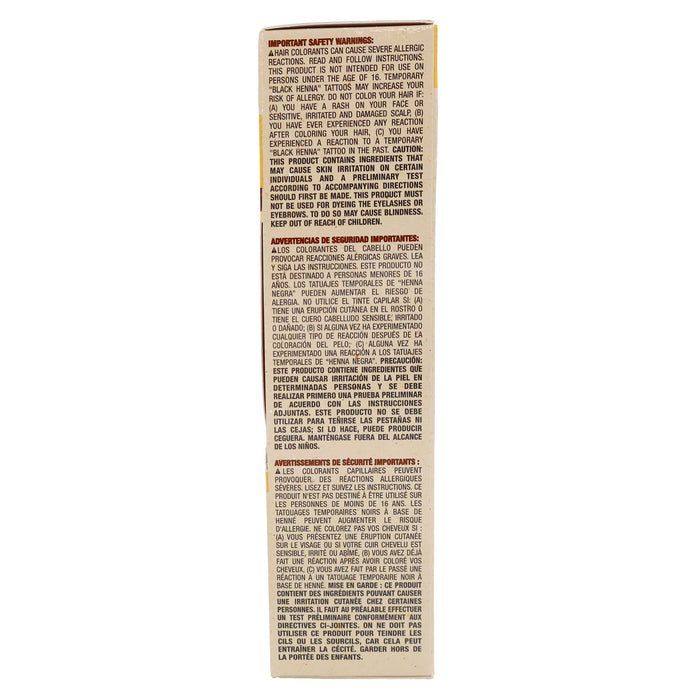 IMPORTANT SAFETY WARNINGS:
⚠HAIR COLORANTS CAN CAUSE SEVERE ALLERGIC
REACTIONS. READ AND FOLLOW INSTRUCTIONS.
THIS PRODUCT IS NOT INTENDED FOR USE ON
PERSONS UNDER THE AGE OF 16. TEMPORARY
"BLACK HENNA" TATTOOS MAY INCREASE YOUR
RISK OF ALLERGY. DO NOT COLOR YOUR HAIR IF:
(A) YOU HAVE A RASH ON YOUR FACE OR
SENSITIVE, IRRITATED AND DAMAGED SCALP, (B)
YOU HAVE EVER EXPERIENCED ANY REACTION
AFTER COLORING YOUR HAIR, (C) YOU HAVE
EXPERIENCED A REACTION TO A TEMPORARY
"BLACK HENNA" TATTOO IN THE PAST. CAUTION:
THIS PRODUCT CONTAINS INGREDIENTS THAT
MAY CAUSE SKIN IRRITATION ON CERTAIN
INDIVIDUALS AND A PRELIMINARY TEST
ACCORDING TO ACCOMPANYING DIRECTIONS
SHOULD FIRST BE MADE. THIS PRODUCT MUST
NOT BE USED FOR DYEING THE EYELASHES OR
EYEBROWS. TO DO SO MAY CAUSE BLINDNESS.
KEEP OUT OF REACH OF CHILDREN.
ADVERTENCIAS DE SEGURIDAD IMPORTANTES:
⚠LOS COLORANTES DEL CABELLO PUEDEN
PROVOCAR REACCIONES ALÉRGICAS GRAVES. LEA
Y SIGA LAS INSTRUCCIONES. ESTE PRODUCTO NO
ESTÁ DESTINADO A PERSONAS MENORES DE 16
AÑOS. LOS TATUAJES TEMPORALES DE "HENNA
NEGRA" PUEDEN AUMENTAR EL RIESGO DE
ALERGIA. NO UTILICE EL TINTE CAPILAR SI: (A)
TIENE UNA ERUPCIÓN CUTÁNEA EN EL ROSTRO O
TIENE EL CUERO CABELLUDO SENSIBLE, IRRITADO
O DAÑADO; (B) SI ALGUNA VEZ HA EXPERIMENTADO
CUALQUIER TIPO DE REACCIÓN DESPUÉS DE LA
COLORACIÓN DEL PELO; (C) ALGUNA VEZ HA
EXPERIMENTADO UNA REACCIÓN A LOS TATUAJES
TEMPORALES DE "HENNA NEGRA". PRECAUCIÓN:
ESTE PRODUCTO CONTIENE INGREDIENTES QUE
PUEDEN CAUSAR IRRITACIÓN DE LA PIEL EN
DETERMINADAS PERSONAS Y SE DEBE
REALIZAR PRIMERO UNA PRUEBA PRELIMINAR
DE ACUERDO CON LAS INSTRUCCIONES
ADJUNTAS. ESTE PRODUCTO NO SE DEBE
UTILIZAR PARA TEÑIRSE LAS PESTAÑAS NI
LAS CEJAS; SI LO HACE, PUEDE PRODUCIR
CEGUERA. MANTÉNGASE FUERA DEL ALCANCE
DE LOS NIÑOS.
AVERTISSEMENTS DE SÉCURITÉ IMPORTANTS :
⚠ LES COLORANTS CAPILLAIRES PEUVENT
PROVOQUER. DES RÉACTIONS ALLERGIQUES
SÉVÈRES. LISEZ ET SUIVEZ LES INSTRUCTIONS. CE
PRODUIT N'EST PAS DESTINÉ À ÊTRE UTILISÉ SUR
LES PERSONNES DE MOINS DE 16 ANS. LES
TATOUAGES TEMPORAIRES NOIRS À BASE DE
HENNÉ PEUVENT AUGMENTER LE RISQUE
D'ALLERGIE. NE COLOREZ PAS VOS CHEVEUX SI :
(A) VOUS PRÉSENTEZ UNE ÉRUPTION CUTANÉE
SUR LE VISAGE OU SI VOTRE CUIR CHEVELU EST
SENSIBLE, IRRITÉ OU ABÎMÉ, (B) VOUS AVEZ DÉJÀ
FAIT UNE RÉACTION APRÈS AVOIR COLORÉ VOS
CHEVEUX, (C) VOUS AVEZ FAIT PAR LE PASSÉ UNE
RÉACTION À UN TATOUAGE TEMPORAIRE NOIR À
BASE DE HENNÉ. MISE EN GARDE : CE PRODUIT
CONTIENT DES INGRÉDIENTS POUVANT CAUSER
UNE IRRITATION CUTANÉE CHEZ CERTAINES
PERSONNES. IL FAUT AU PRÉALABLE EFFECTUER
UN TEST PRÉLIMINAIRE CONFORMÉMENT AUX
DIRECTIVES CI-JOINTES. ON NE DOIT PAS
UTILISER CE PRODUIT POUR TEINDRE LES
CILS OU LES SOURCILS, CAR CELA PEUT
ENTRAÎNER LA CÉCITÉ. GARDER HORS DE
LA PORTÉE DES ENFANTS.